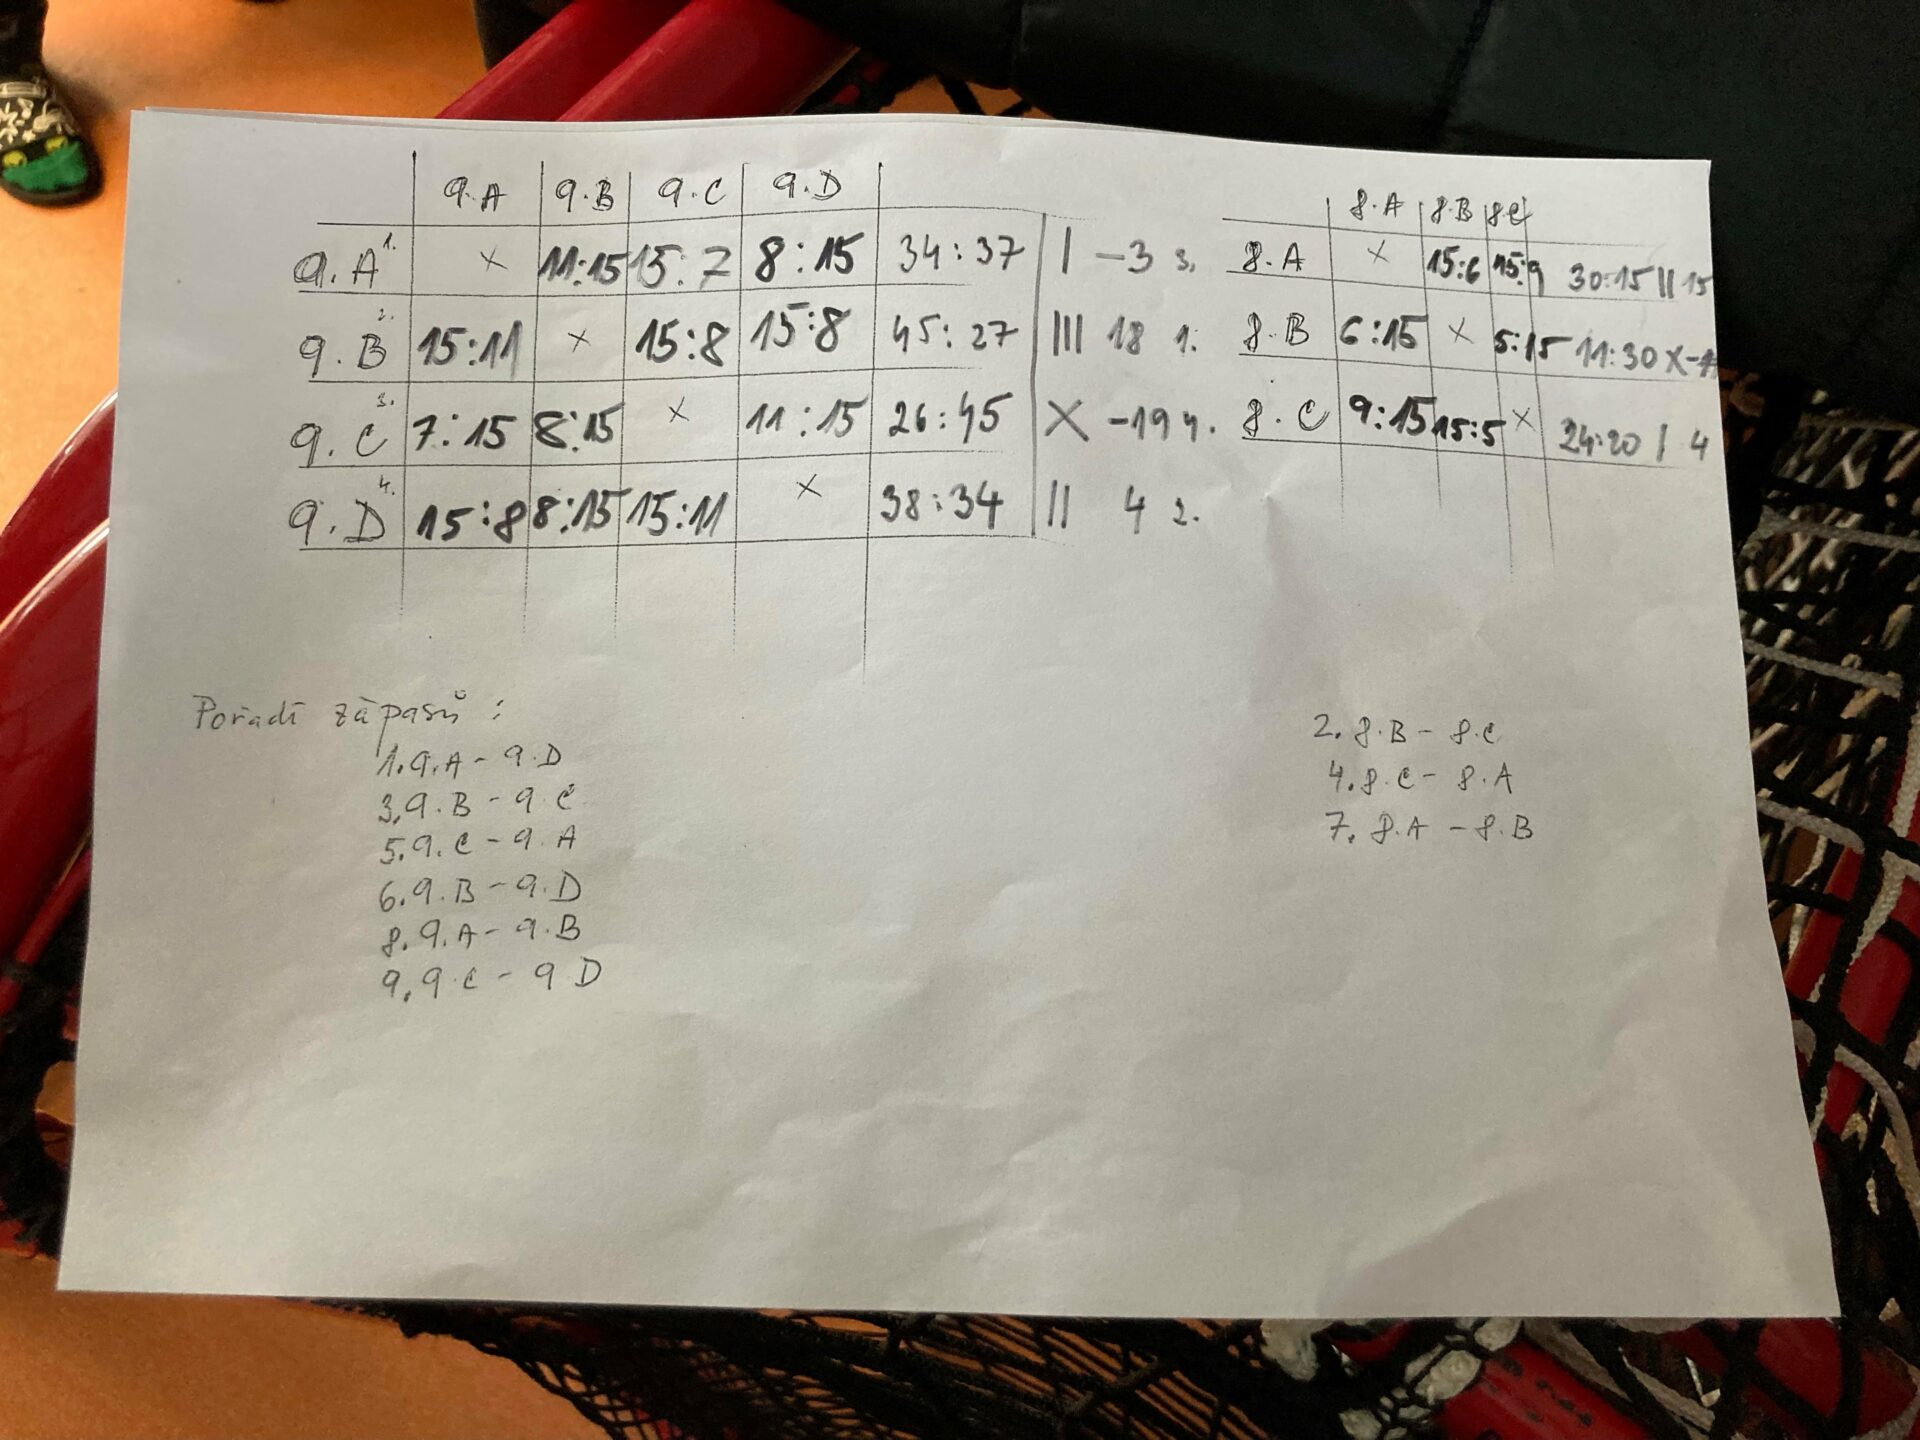 9.A 9.B 9.C 9.D
9.A 1. × 11:15 15:7 8:15 34:37 | -3 3.
9.B 2. 15:11 × 15:8 15:8 45:27 ||| 18 1.
9.C 3. 7:15 8:15 × 11:15 26:45 X -19 4.
9.D 4. 15:8 8:15 15:11 × 38:34 || 4 2.
8.A 8.B 8.C
8.A × 15:6 15:9 30:15 || 15
8.B 6:15 × 5:15 11:30 X
8.C 9:15 15:5 × 24:20 | 4
Pořadí zápasů:
1. 9.A - 9.D
3. 9.B - 9.C
5. 9.C - 9.A
6. 9.B - 9.D
8. 9.A - 9.B
9. 9.C - 9D
2. 8.B - 8.C
4. 8.C - 8.A
7. 8.A - 8.B